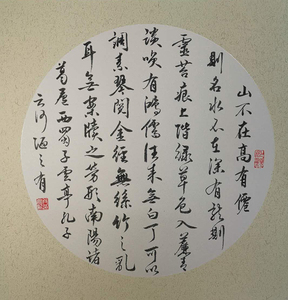 山不在高有僊
則名水不在深有龍則
靈苔痕上階綠草色入簾青
談咲有鴻儒往來無白丁可以
調素琴閱金經無絲竹之亂
耳無案牘之勞形南陽諸
葛廬西蜀子雲亭孔子
云何陋之有